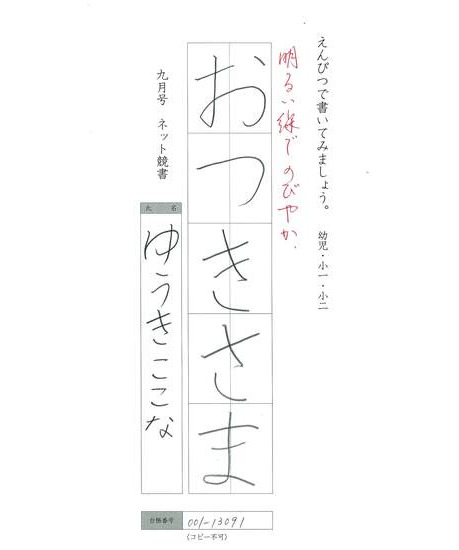 えんぴつで書いてみましょう。 幼児・小一・小二
明るい線でのびやか。
おつきさま
九月号 ネット競書
氏名
ゆうきここな
台帳番号 001-13091
(コピー不可)